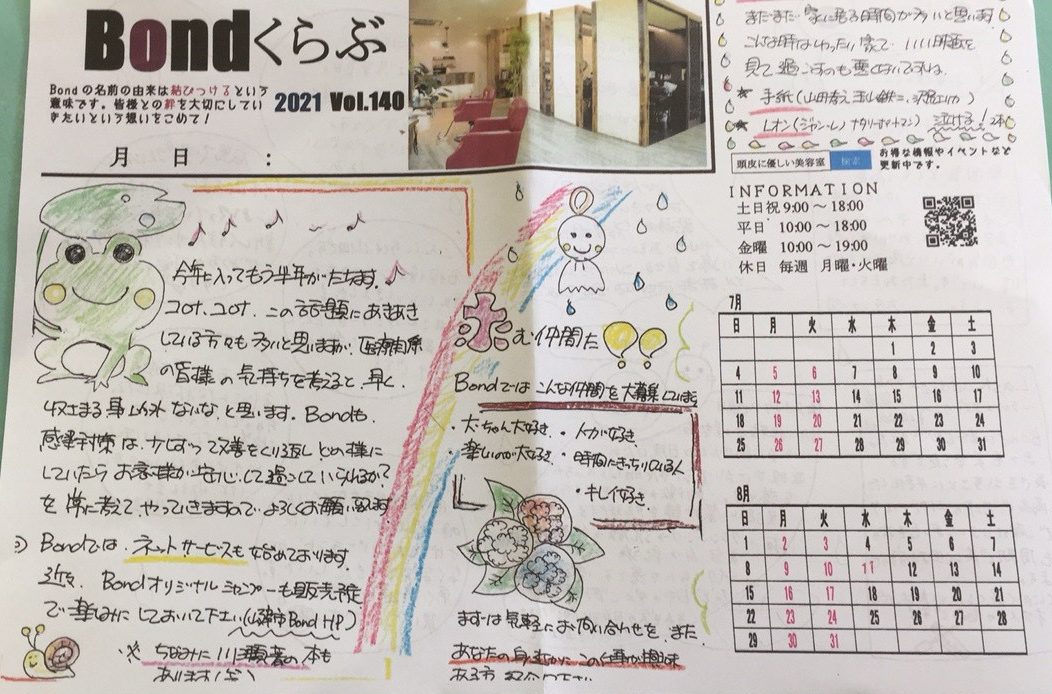 Bondくらぶ
Bondの名前の由来は結びつけるという
意味です。皆様との絆を大切にしてい
きたいという想いをこめて！
2021 Vol.140
月 日 :
今年に入ってもう半年がたちます。
コロナ、コロナ、この話題にあきあき
している方々も多いと思いますが、医療関係
の皆様の気持ちを考えると、早く、
収まる事以外ないな、と思います。Bondも、
感染対策は、少しずつ改善をくり返しどの様に
していたらお客様が安心して過ごしていられるか?
を常に考えてやっていきますのでよろしくお願い致します
Bondでは、ネットサービスも始めております。
近々、Bondオリジナルシャンプーも販売予定
で楽しみにしておいて下さい(Bond HP)
※ちなみに 著の本も
あります！
求む仲間た!!
Bondでは こんな仲間を大募集しています
・犬ちゃん大好き ・人が好き
・楽しいのが大好き ・時間にきっちりしている人
・キレイ好き
まずは気軽にお問い合わせを、また
あなたの身近かにこの仕事が興味
ある方 紹介下さい
まだまだ、家に居る時間が多いと思います
こんな時はゆったり家で、いい映画を
見て過ごすのも悪くないですね。
★ 手紙(山田孝之 玉山鉄二、沢尻エリカ)
★ レオン(ジャン・レノ ナタリーポートマン) 泣ける！2本
頭皮に優しい美容室 検索
お得な情報やイベントなど
更新中です。
INFORMATION
土日祝 9:00 ～ 18:00
平日 10:00 ～ 18:00
金曜 10:00 ～ 19:00
休日 毎週 月曜・火曜
7月
日 月 火 水 木 金 土
1 2 3
4 5 6 7 8 9 10
11 12 13 14 15 16 17
18 19 20 21 22 23 24
25 26 27 28 29 30 31
8月
日 月 火 水 木 金 土
1 2 3 4 5 6 7
8 9 10 11 12 13 14
15 16 17 18 19 20 21
22 23 24 25 26 27 28
29 30 31